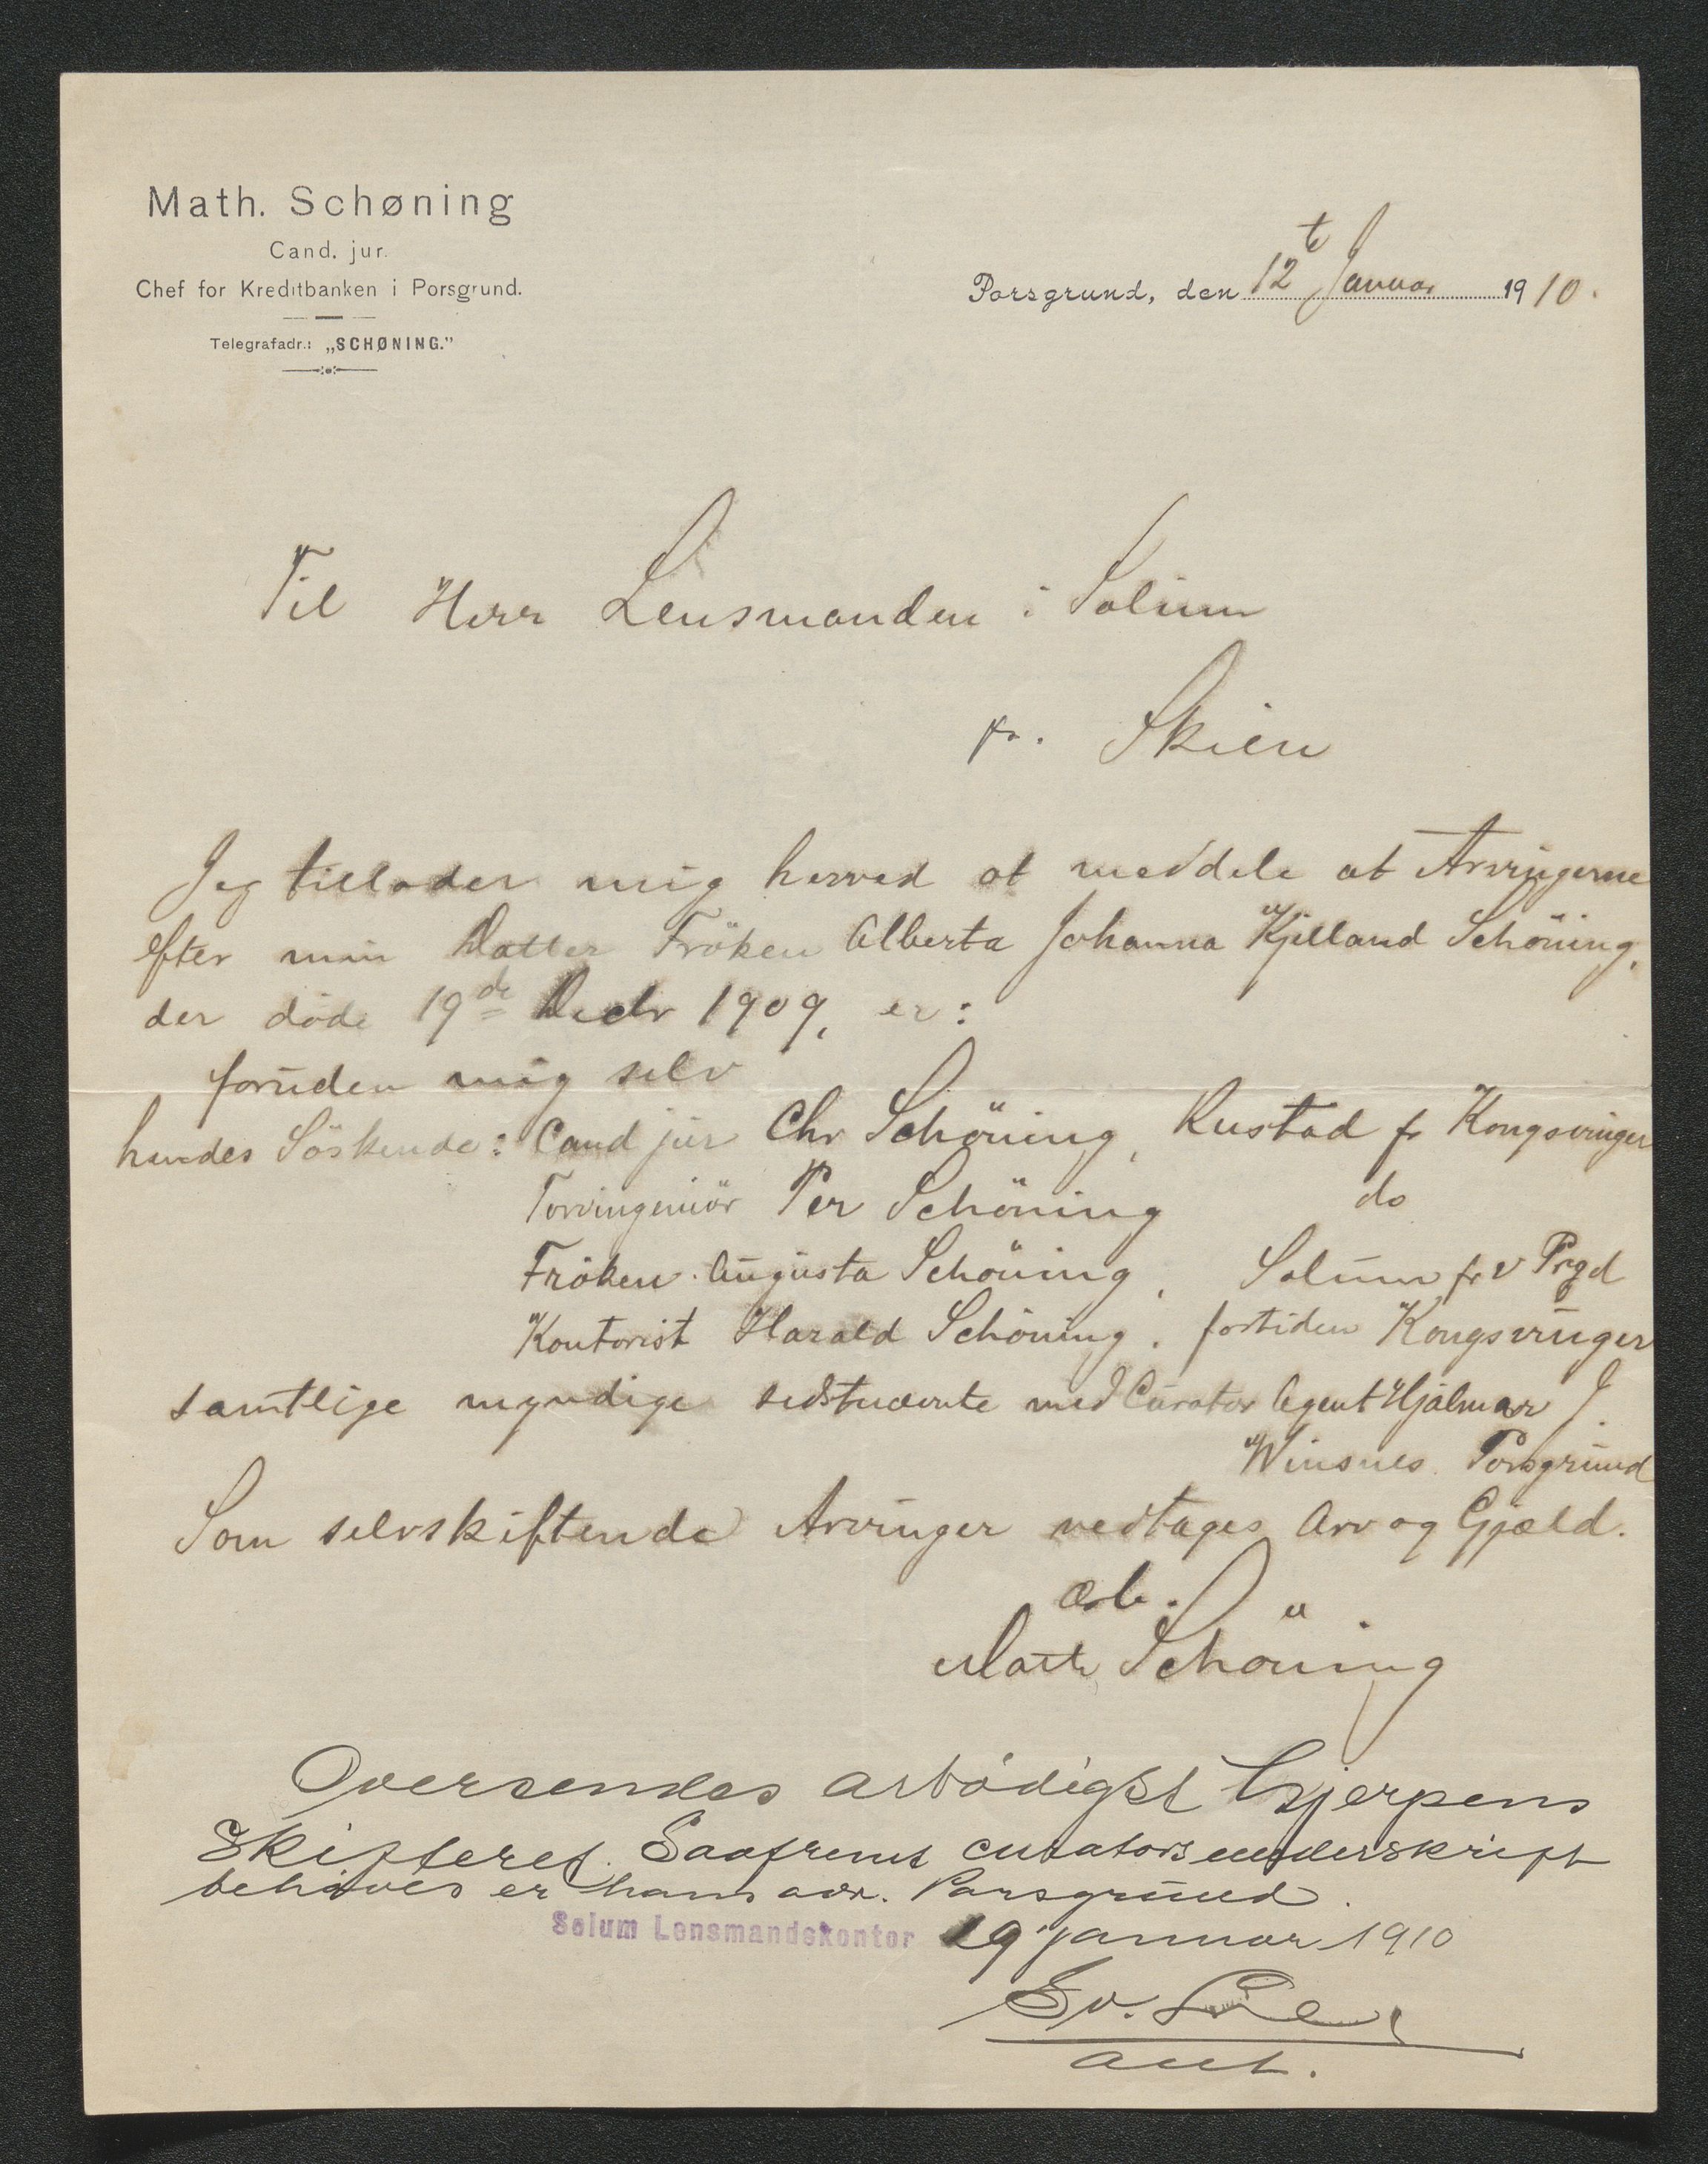 Math. Schøning
Cand. jur.
Chef for Kreditbanken i Porsgrund.
Telegrafadr.: „SCHØNING.”
Porsgrund, den 12te Januar 1910.
Til Herr Lensmanden i Solum
pr. Skien
Jeg tillader mig herved at meddele at Arvingerne
efter min Datter Fröken Alberta Johanna Kjelland Schöning,
der döde 19de Decbr 1909, er:
foruden mig selv
hendes Söskende: Cand jur Chr Schöning, Rustad pr Kongsvinger
Torvingeniör Per Schöning do
Fröken Augusta Schöning, Solum pr Prgd
Kontorist Harald Schöning. fortiden Kongsvinger
samtlige myndige sidstnævnte med Curator Agent Hjalmar J.
Winsnes Porsgrund
Som selvskiftende Arvinger vedtages Arv og Gjæld.
ærb.
Math Schöning
Oversendes ærbödigst Gjerpens
Skifteret. Saafremt curators underskrift
behöves er hans adr. Porsgrund.
Solum Lensmandskontor 19 januar 1910
Ev.
aut.